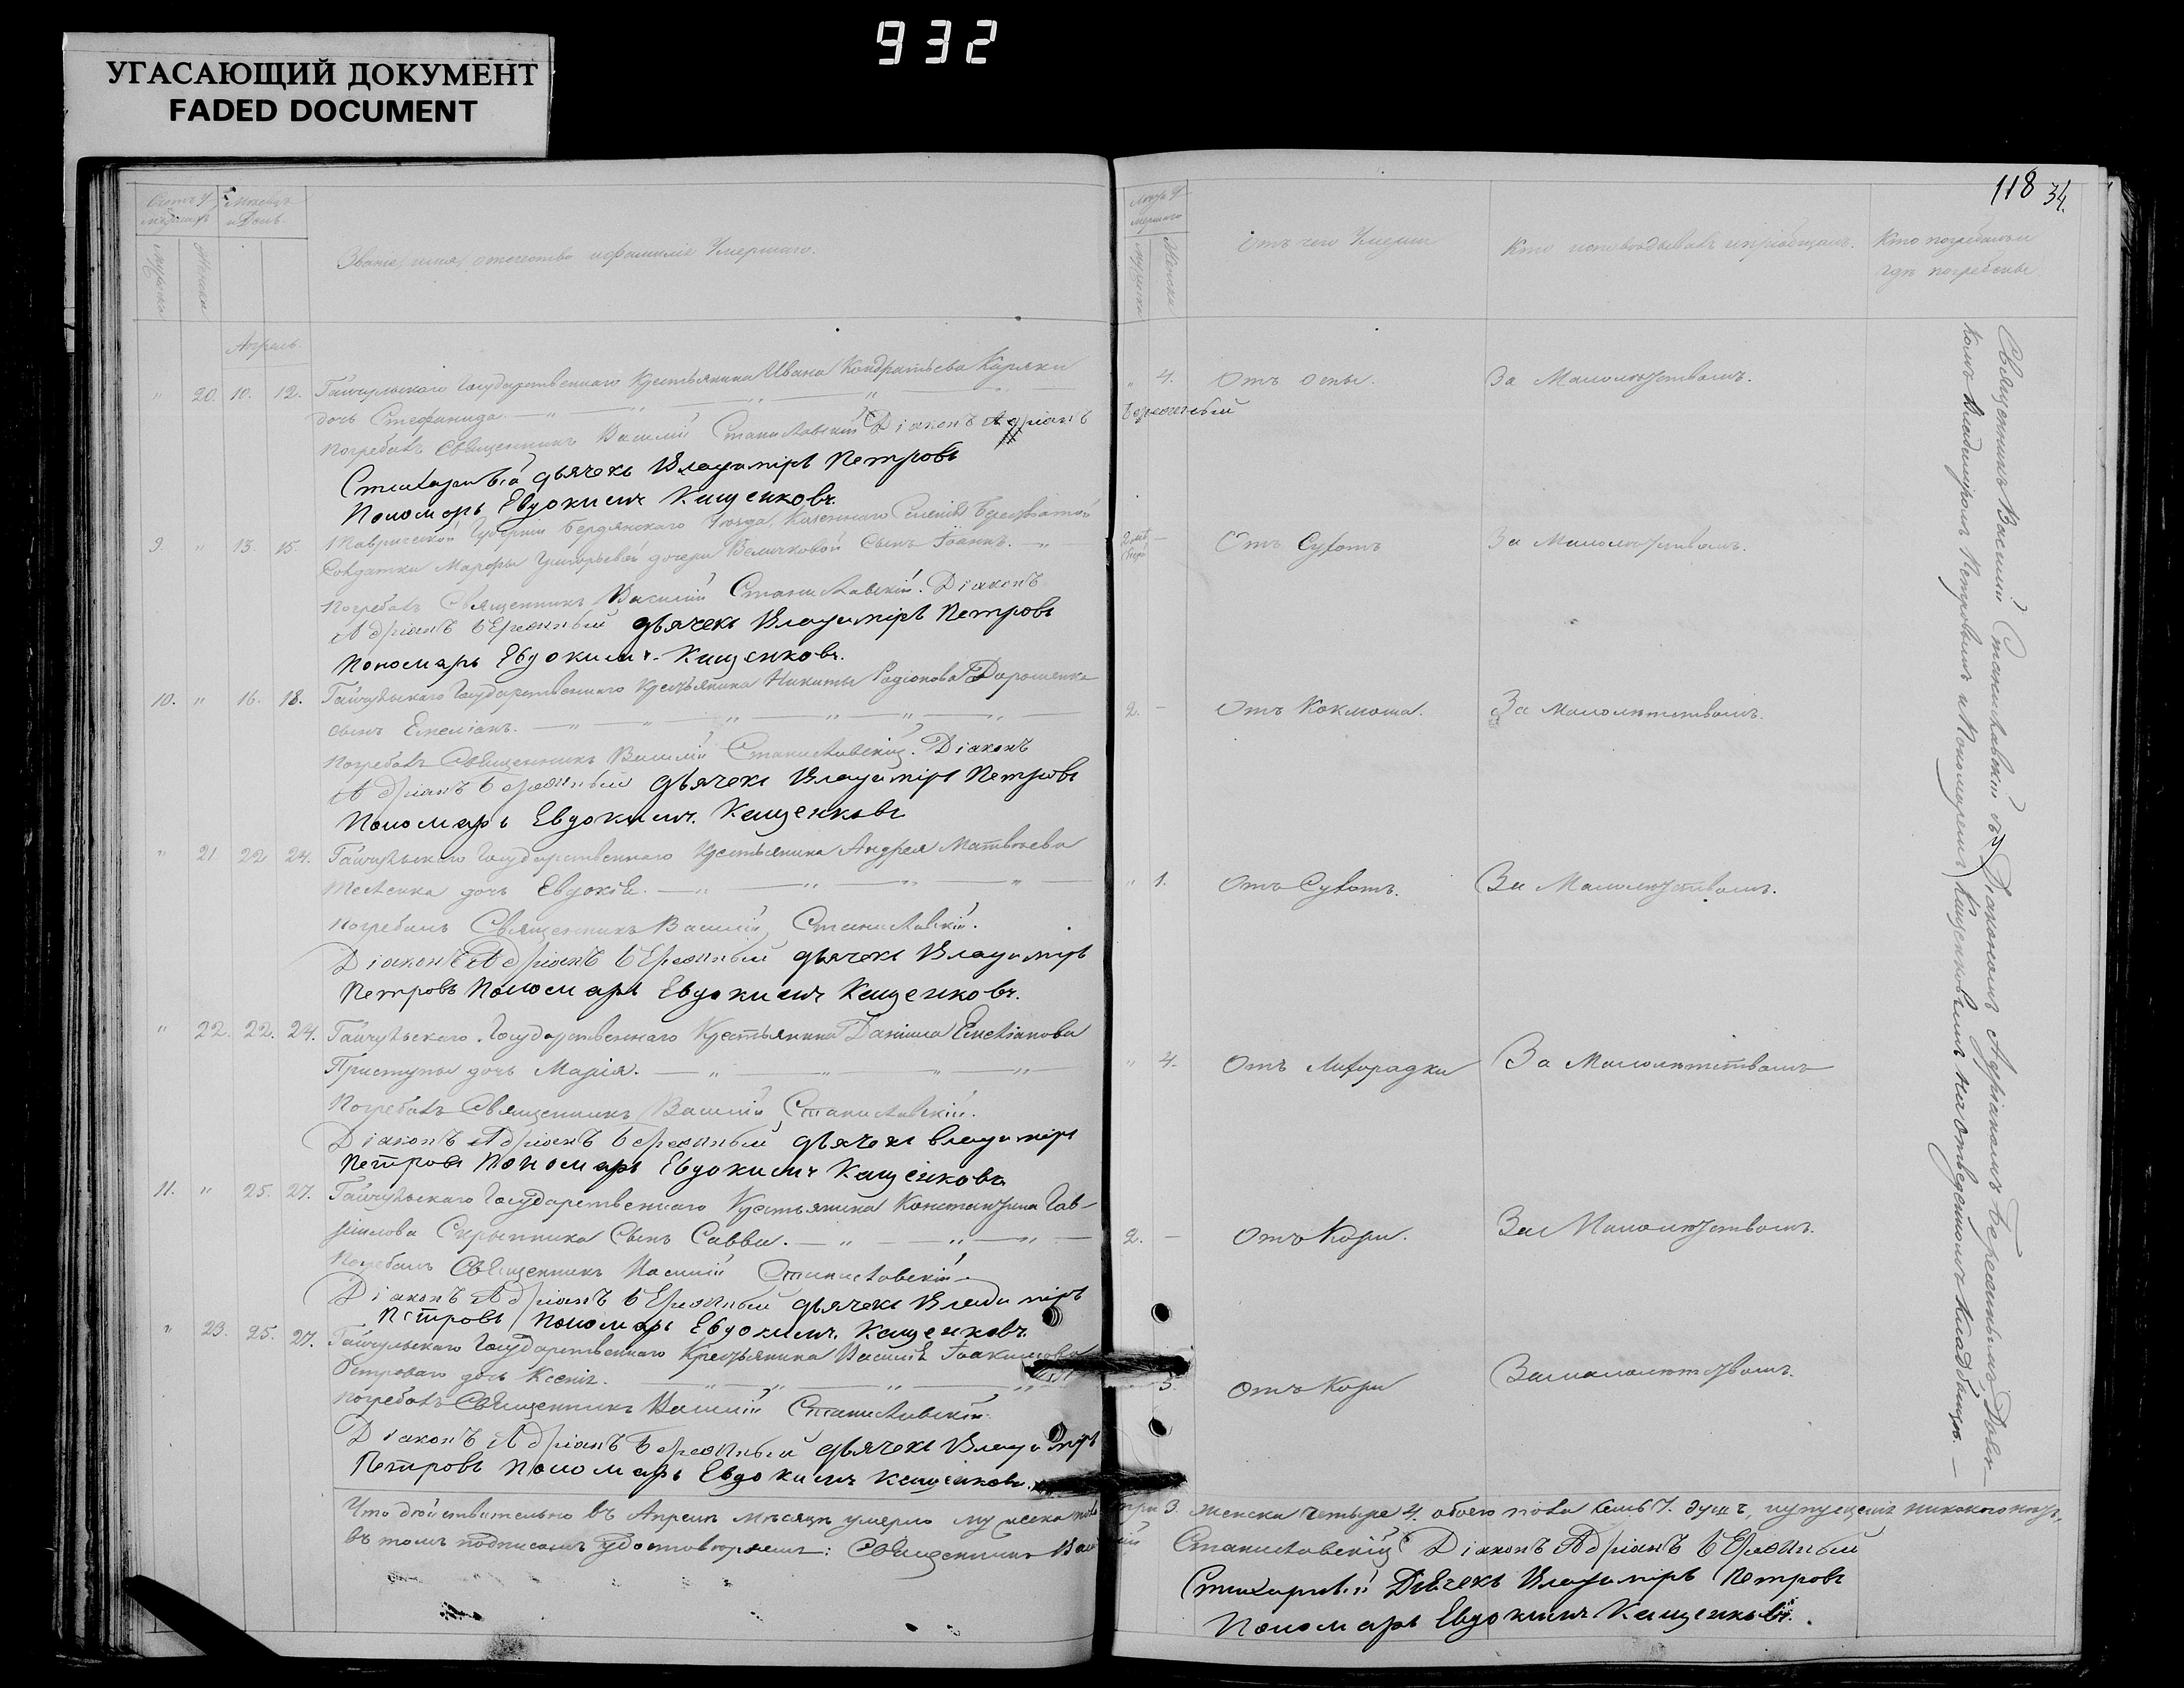 932
УГАСАЮЩИЙ ДОКУМЕНТ
FADED DOCUMENT
118 34.
Счетъ умершихъ
Мѣсяцъ и День.
мужеска
женска
Званіе, имя, отечество и фамилія Умершаго.
Лѣта Умершаго
мужеска
Женска
Отъ чего Умерли
Кто исповѣдывалъ и пріобщалъ.
Кто погребалъ и
гдѣ погребены
Апрель.
" 20. 10. 12. Гайчульскаго Государственнаго Крестьянина Ивана Кондратьева Каряки
дочь Стефанида. — " — " — " — " —
" 4. Отъ оспы. За Малолѣтствомъ.
Погребалъ Священникъ Василій Станиславскій Діаконъ Адріанъ
Бережный
Стихарный дьячекъ Владиміръ Петровъ
Пономарь Евдокимъ Кащенковъ.
9. " 13. 15. Таврической Губерніи Бердянскаго Уѣзда, Казеннаго Селенія
Солдатки Марфы Григорьевой дочери Величковой Сынъ Іоаннъ. — "
— Отъ Сухотъ За Малолѣтствомъ.
Погребалъ Священникъ Василій Станиславскій. Діаконъ
Адріанъ Бережный дьячекъ Владиміръ Петровъ
Пономарь Евдокимъ. Кащенковъ.
10. " 16. 18. Гайчульскаго Государственнаго Крестьянина Никиты Родіонова Дорошенка
сынъ Емеліанъ. — " — " — " — " — " — " —
2. — Отъ Коклюша. За Малолѣтствомъ.
Погребалъ Священникъ Василій Станиславскій. Діаконъ
Адріанъ Бережный дьячекъ Владиміръ Петровъ
Пономарь Евдокимъ. Кащенковъ
" 21 22 24. Гайчульскаго Государственнаго Крестьянина Андрея Матвѣева
дочь Евдокія. — " — " — " — " —
" 1. Отъ Сухотъ. За Малолѣтствомъ.
Погребалъ Священникъ Василій Станиславскій.
Діаконъ Адріанъ Бережный дьячекъ Владиміръ
Петровъ Пономарь Евдокимъ Кащенковъ.
" 22. 22. 24. Гайчульскаго Государственнаго Крестьянина Даніила Емеліанова
Приступы дочь Марія. — " — " — " — " —
" 4. Отъ Лихорадки За Малолѣтствомъ
Погребалъ Священникъ Василій Станиславскій.
Діаконъ Адріанъ Бережный дьячекъ Владиміръ
Петровъ Пономарь Евдокимъ Кащенковъ
11. " 25. 27. Гайчульскаго Государственнаго Крестьянина Константина Гав-
ріилова Скрыпника Сынъ Савва. — " — " — " —
2. — Отъ Кори. За Малолѣтствомъ.
Погребалъ Священникъ Василій Станиславскій
Діаконъ Адріанъ Бережный дьячекъ Владиміръ
Петровъ Пономарь Евдокимъ. Кащенковъ.
" 23. 25. 27. Гайчульскаго Государственнаго Крестьянина Василія Іоакимова
Петроваго дочь Ксенія. — " — " — " — "
3. Отъ Кори За малолѣтствомъ.
Погребалъ Священникъ Василій Станиславскій.
Діаконъ Адріанъ Бережный дьячекъ Владиміръ
Петровъ Пономарь Евдокимъ Кащенковъ.
Священникъ Василій Станиславскій съ Діакономъ Адріаномъ Бережнымъ, Дьяч-
комъ Владиміромъ Петровымъ и Пономаремъ Кащенковымъ на отведенномъ кладбищѣ. —
Что дѣйствительно въ Апрелѣ мѣсяцѣ умерло мужеска пола три 3. женска четыре 4. обоего пола семь 7. душъ, и упущенія никакого нѣтъ,
въ томъ подписомъ удостовѣряемъ: Священникъ Василій Станиславскій Діаконъ Адріанъ Бережный
Стихарный Дьячекъ Владиміръ Петровъ
Пономарь Евдокимъ Кащенковъ.